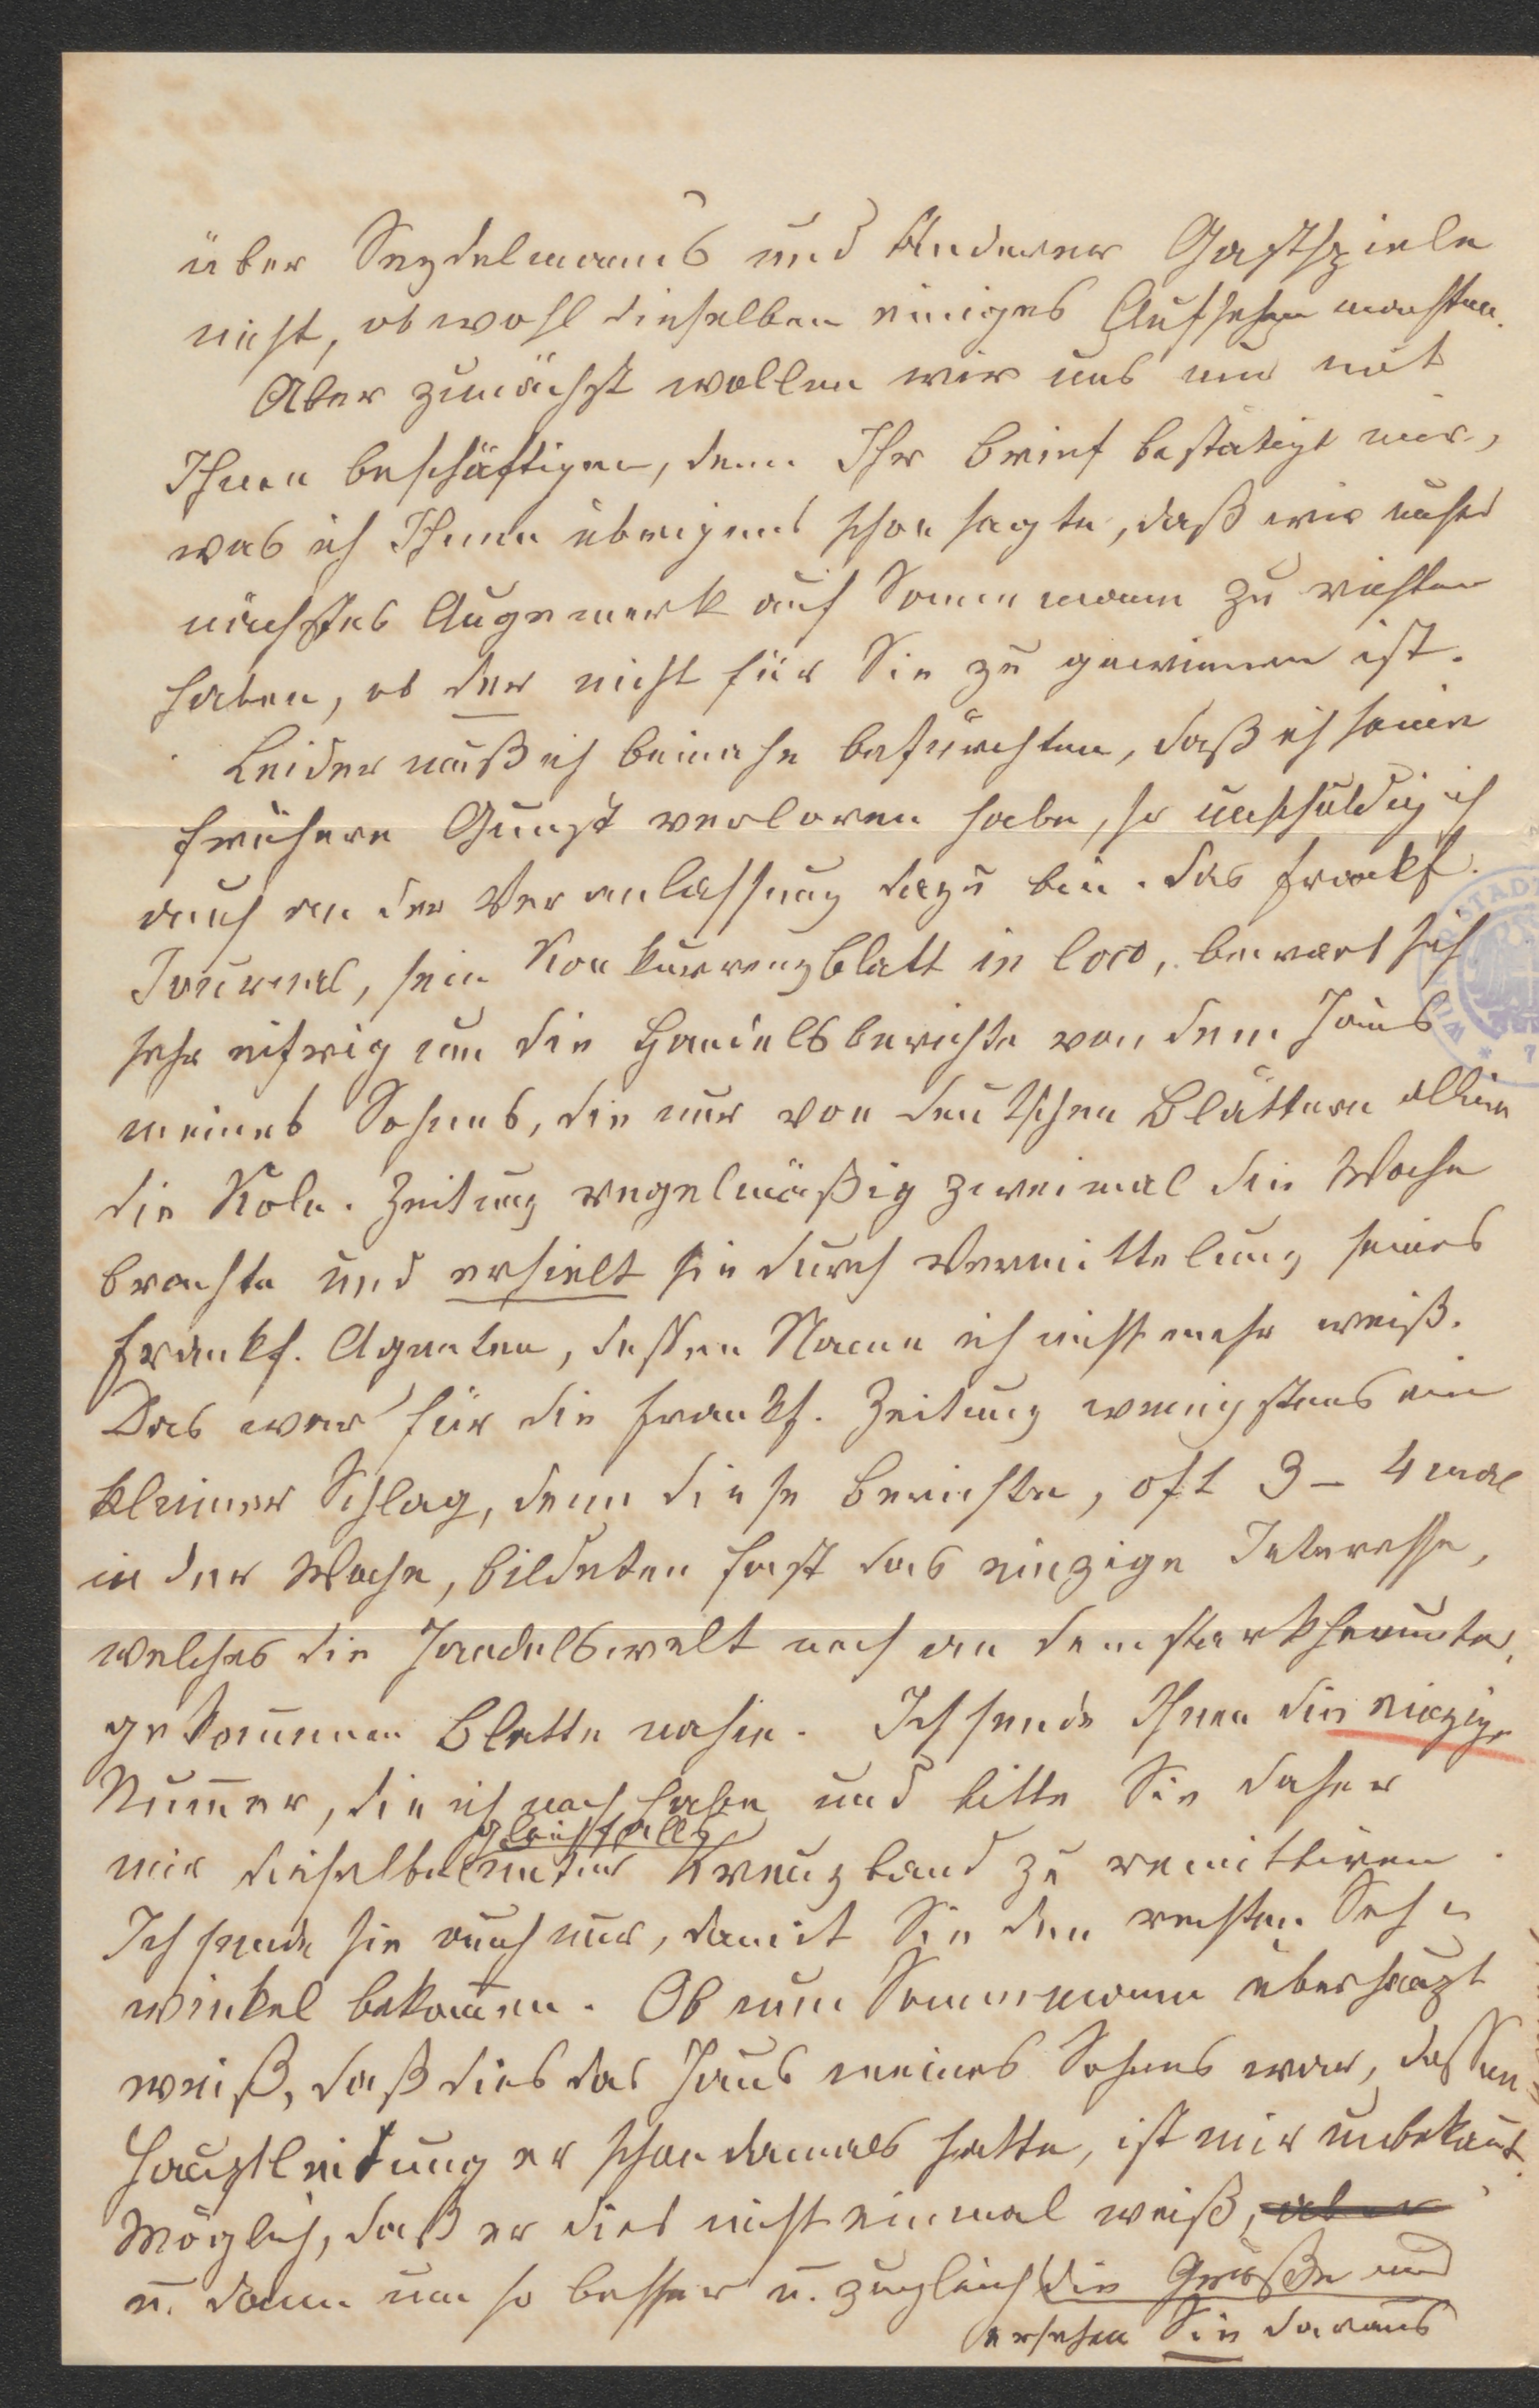 über Seydelmann's und Anderer Gastspiele
nicht, obwohl dieselben einiges Aufsehen machten.
Aber zunächst wollen wir uns nur mit
Ihnen beschäftigen, denn Ihr Brief bestätigt mir,
was ich Ihnen übrigens schon sagte, daß wir unser
nächstes Augenmerk auf Sonnemann zu richten
haben, ob der nicht für Sie zu gewinnen ist.
Leider muß ich beinahe befürchten, daß ich seine
frühere Gunst verloren habe, so unschuldig ich
auch an der Veranlassung dazu bin. Das Frankf.
Journal, sein Konkurrenzblatt in loco, bewarb sich
sehr eifrig um die Handelsberichte von dem Haus
meines Sohnes, die nur von deutschen Blättern allein
die Köln. Zeitung regelmäßig zweimal die Woche
brachte und erhielt sie durch Vermittelung seines
Frankf. Agenten, dessen Name ich nicht mehr weiß.
Das war für die Frankf. Zeitung wenigstens ein
kleiner Schlag, denn diese Berichte, oft 3 – 4 mal
in der Woche, bildeten fast das einzige Interesse,
welches die Handelswelt noch an dem stark herunter,
gekom̅enen Blatte nahm. Ich sende Ihnen die einzige
Num̅er, die ich noch habe und bitte Sie daher
gleichfalls
mir dieselbe unter Kreuzband zu remittiren.
Ich sende sie auch nur, damit Sie den rechten Seh=
winkel bekom̅en. Ob nun Sonnemann überhaupt
weiß, daß dies das Haus meines Sohnes war, dessen
Hauptleitung er schon damals hatte, ist mir unbekan̅t.
Möglich, daß er dies nicht einmal weiß, aber
u. dann um so besser u. zugleich die Größe und
ersehen Sie daraus